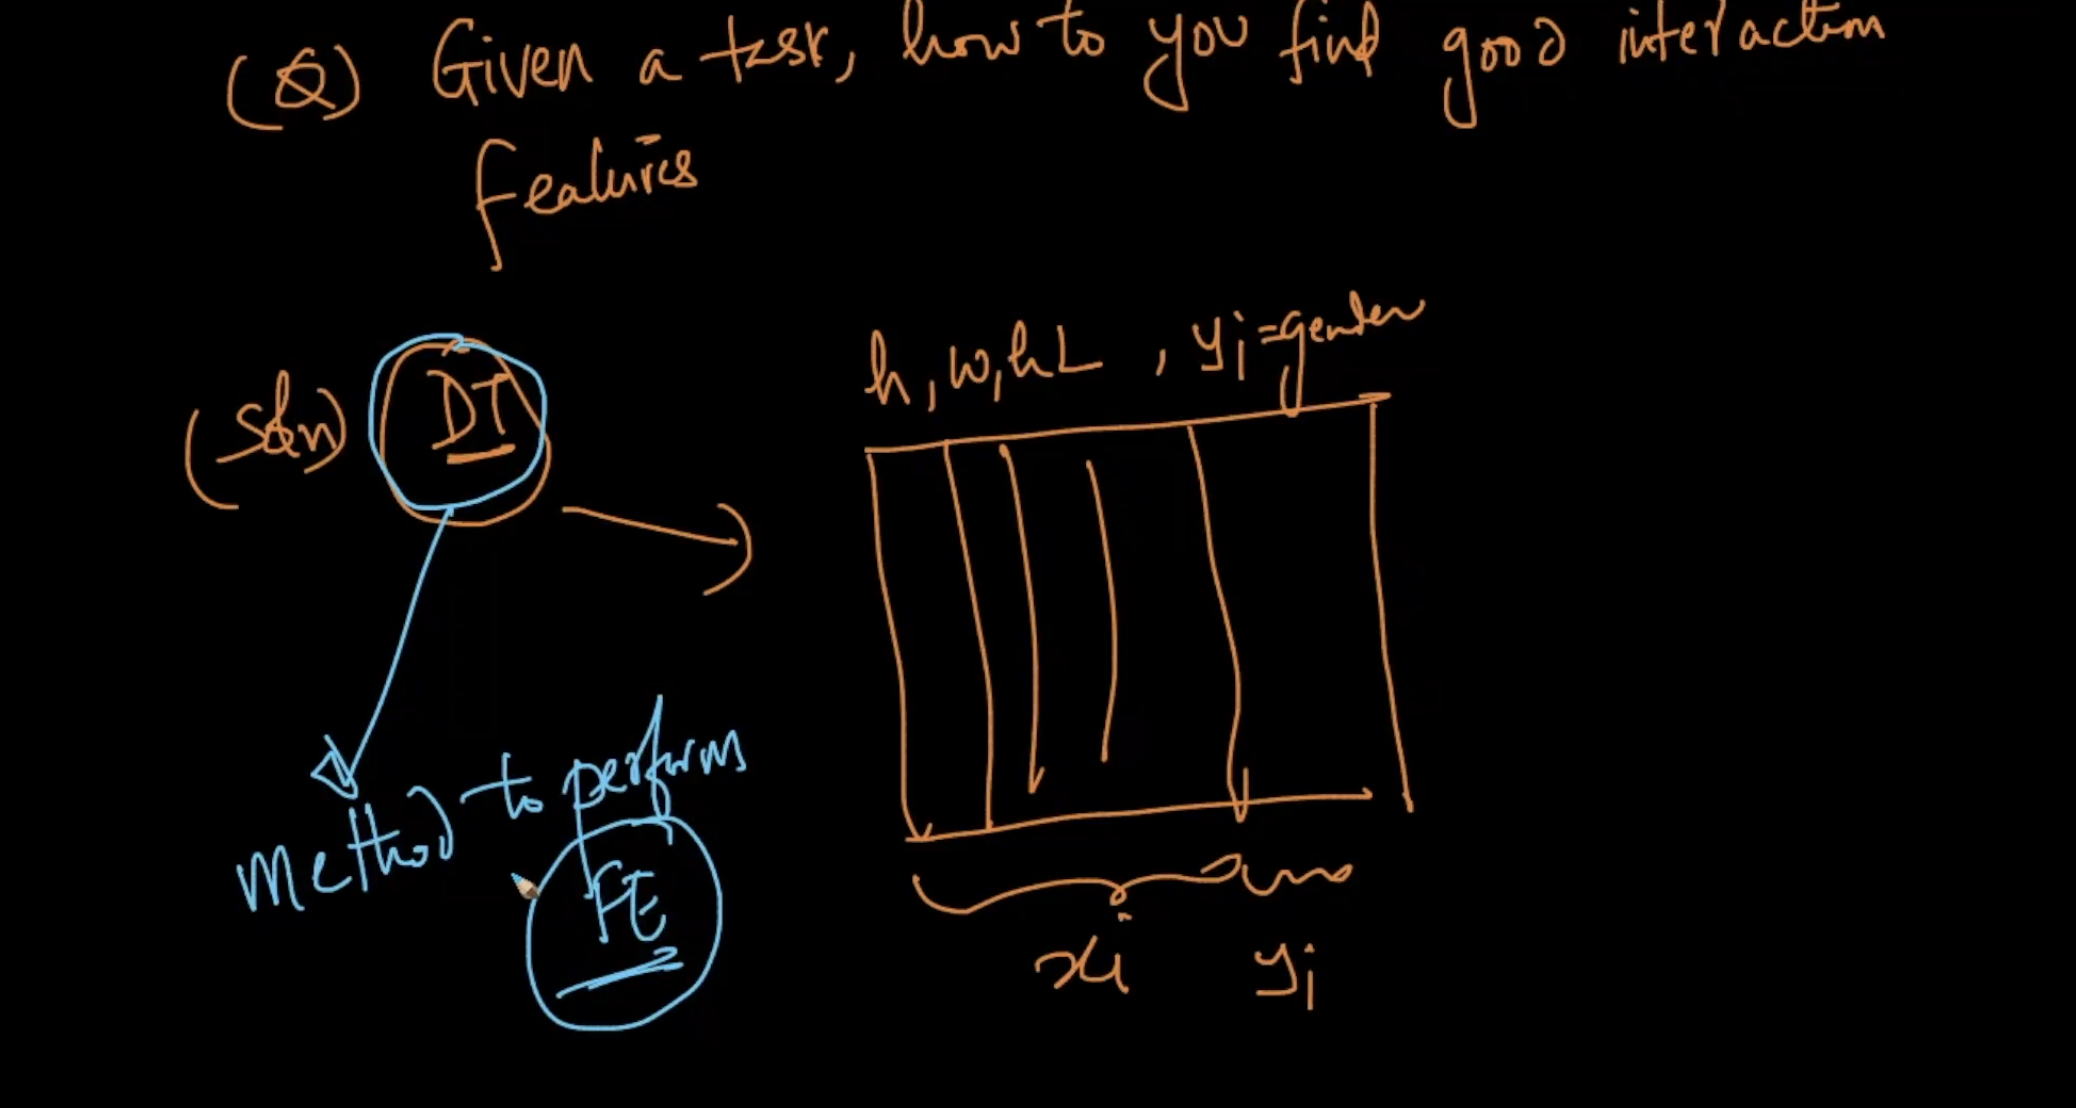 (Q) Given a task, how to you find good interaction
features
(Soln) DT
h, w, hL , yi=gender
method to perform
FE
xi yi